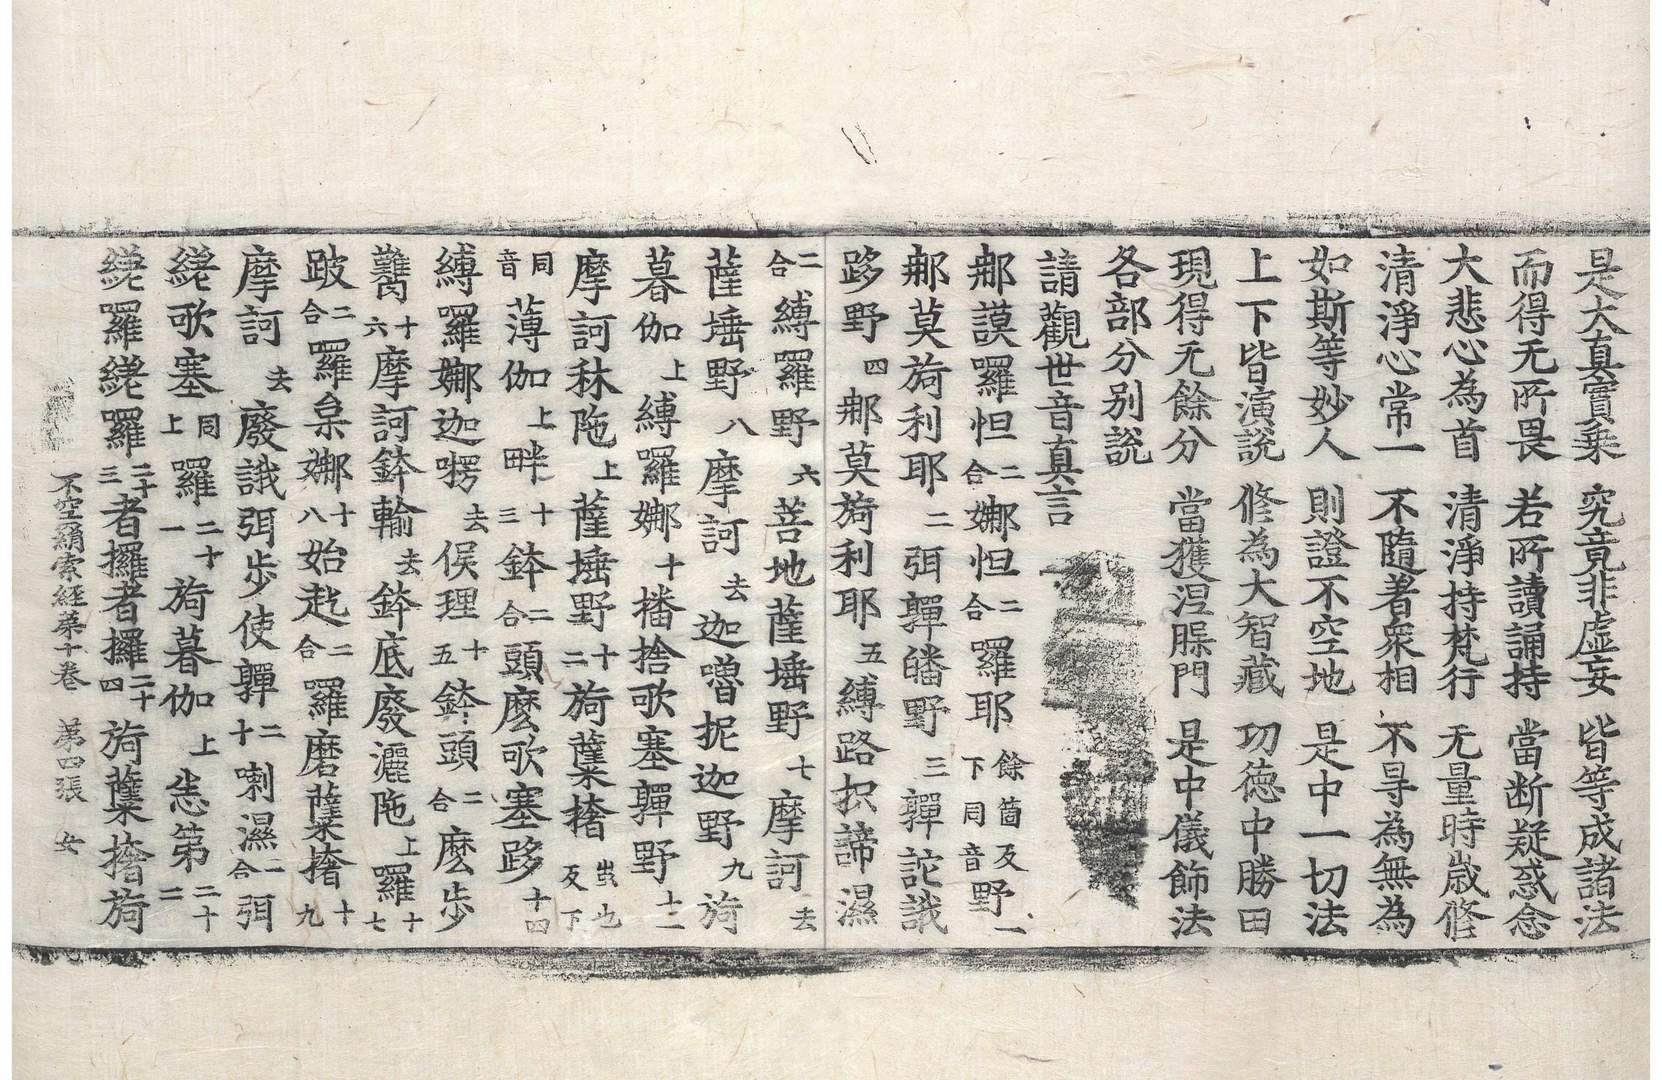 是大真實乗　究竟非虚妄　皆等成諸法
而得无所畏　若所讀誦持　當断疑惑念
大悲心為首　清淨持梵行　无量時歲修
清淨心常一　不隨著衆相　不㝵為無為
如斯等妙人　則證不空地　是中一切法
上下皆演説　修為大智藏　功徳中勝田
現得无餘分　當獲涅槃門　是中儀飾法
各部分别説
請觀世音真言
那謨羅怛二合娜怛二合羅耶餘箇反下同音野一
那莫旖利耶二弭嚲皤野三嚲詑誐
跢野四那莫旖利耶五縛路抧諦濕
二合縛羅野六菩地薩埵野七摩訶去
薩埵野八摩訶去迦嚕抳迦野九旖
暮伽上縛羅娜十播捨歌塞嚲野十一
摩訶秝陁上薩埵野十二旖蘖撦蚩也反下
同音薄伽上畔十三鉢二合頭麽歌塞跢十四
縛羅娜迦㗁去俟理十五鉢頭二合麽步
難十六摩訶鉢輸去鉢底廢灑陁上羅十七
跛二合羅枲娜十八始起二合羅磨蘖撦十九
摩訶去廢誐弭步使嚲二十喇濕二合弭
繞歌塞同上羅二十一旖暮伽上恙第二十二
繞羅繞羅二十三者攞者攞二十四旖蘖撦旖
不空羂索經苐十卷　苐四張　女